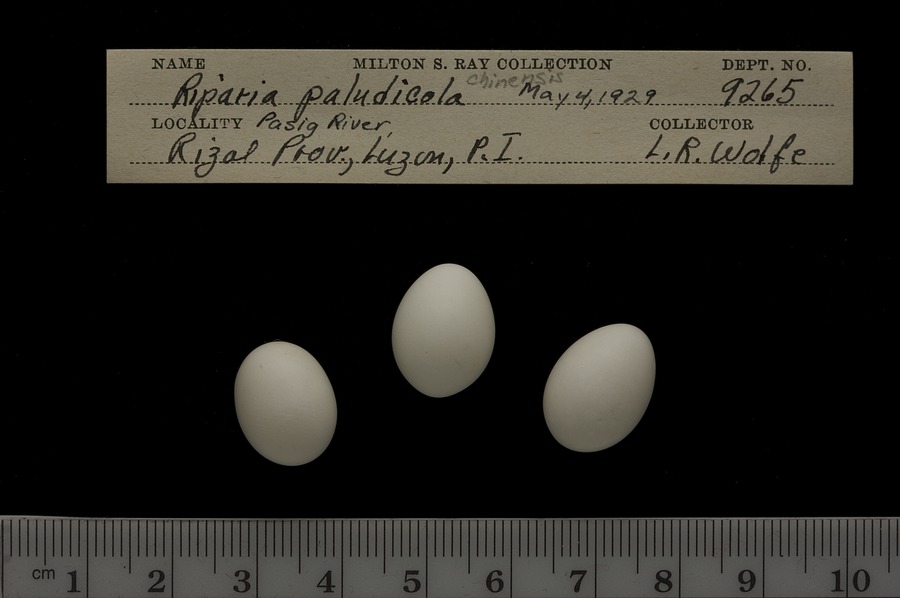 NAME MILTON S. RAY COLLECTION DEPT. NO.
chinensis
Riparia paludicola May 4, 1929 9265
LOCALITY Pasig River, COLLECTOR
Rizal Prov., Luzon, P.I. L.R. Wolfe
cm 1 2 3 4 5 6 7 8 9 10